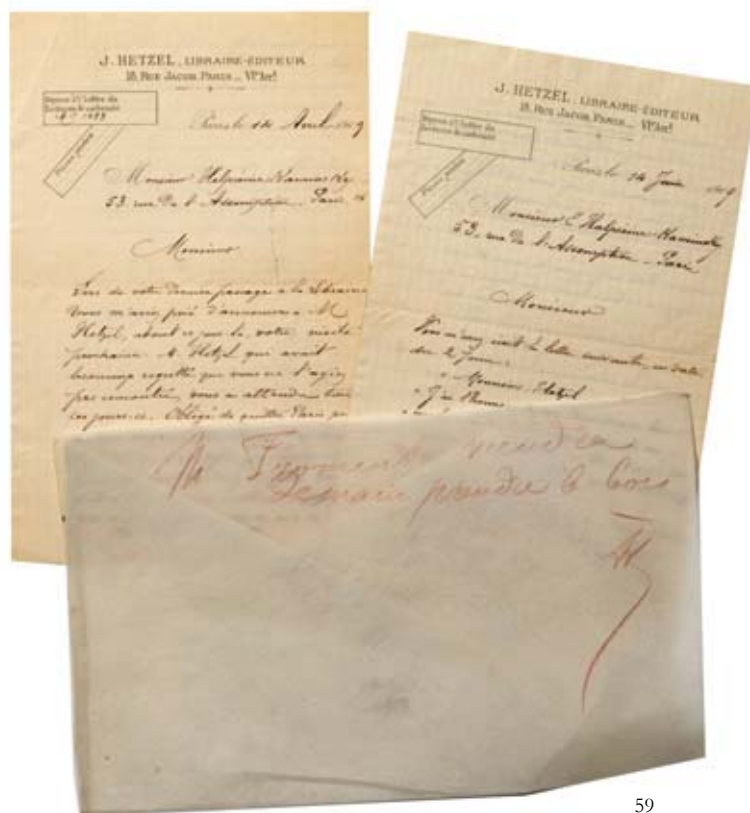 J. HETZEL, LIBRAIRE-ÉDITEUR
18, RUE JACOB, PARIS _ VIe Arrt
Réponse à la lettre du
Paris le 14 Avril 1909
Monsieur Halpérine Kaminsky
53, rue de l'Assomption - Paris
Monsieur
Lors de votre dernier passage à la librairie
vous m'avez prié d'annoncer à M
Hetzel, absent ce jour là, votre visite
prochaine. M. Hetzel qui avait
beaucoup regretté que vous ne l'ayez
pas rencontré, vous a attendu tous
ces jours-ci. Obligé de quitter Paris
J. HETZEL, LIBRAIRE-ÉDITEUR
18, RUE JACOB, PARIS _ VIe Arrt
Paris le 14 Juin 1909
Monsieur E Halpérine-Kaminsky
53, rue de l'Assomption - Paris
Monsieur
Vous m'avez écrit la lettre suivante, en date
du 2 Juin :
" Monsieur Hetzel
M Froment viendra
demain prendre le bois
59